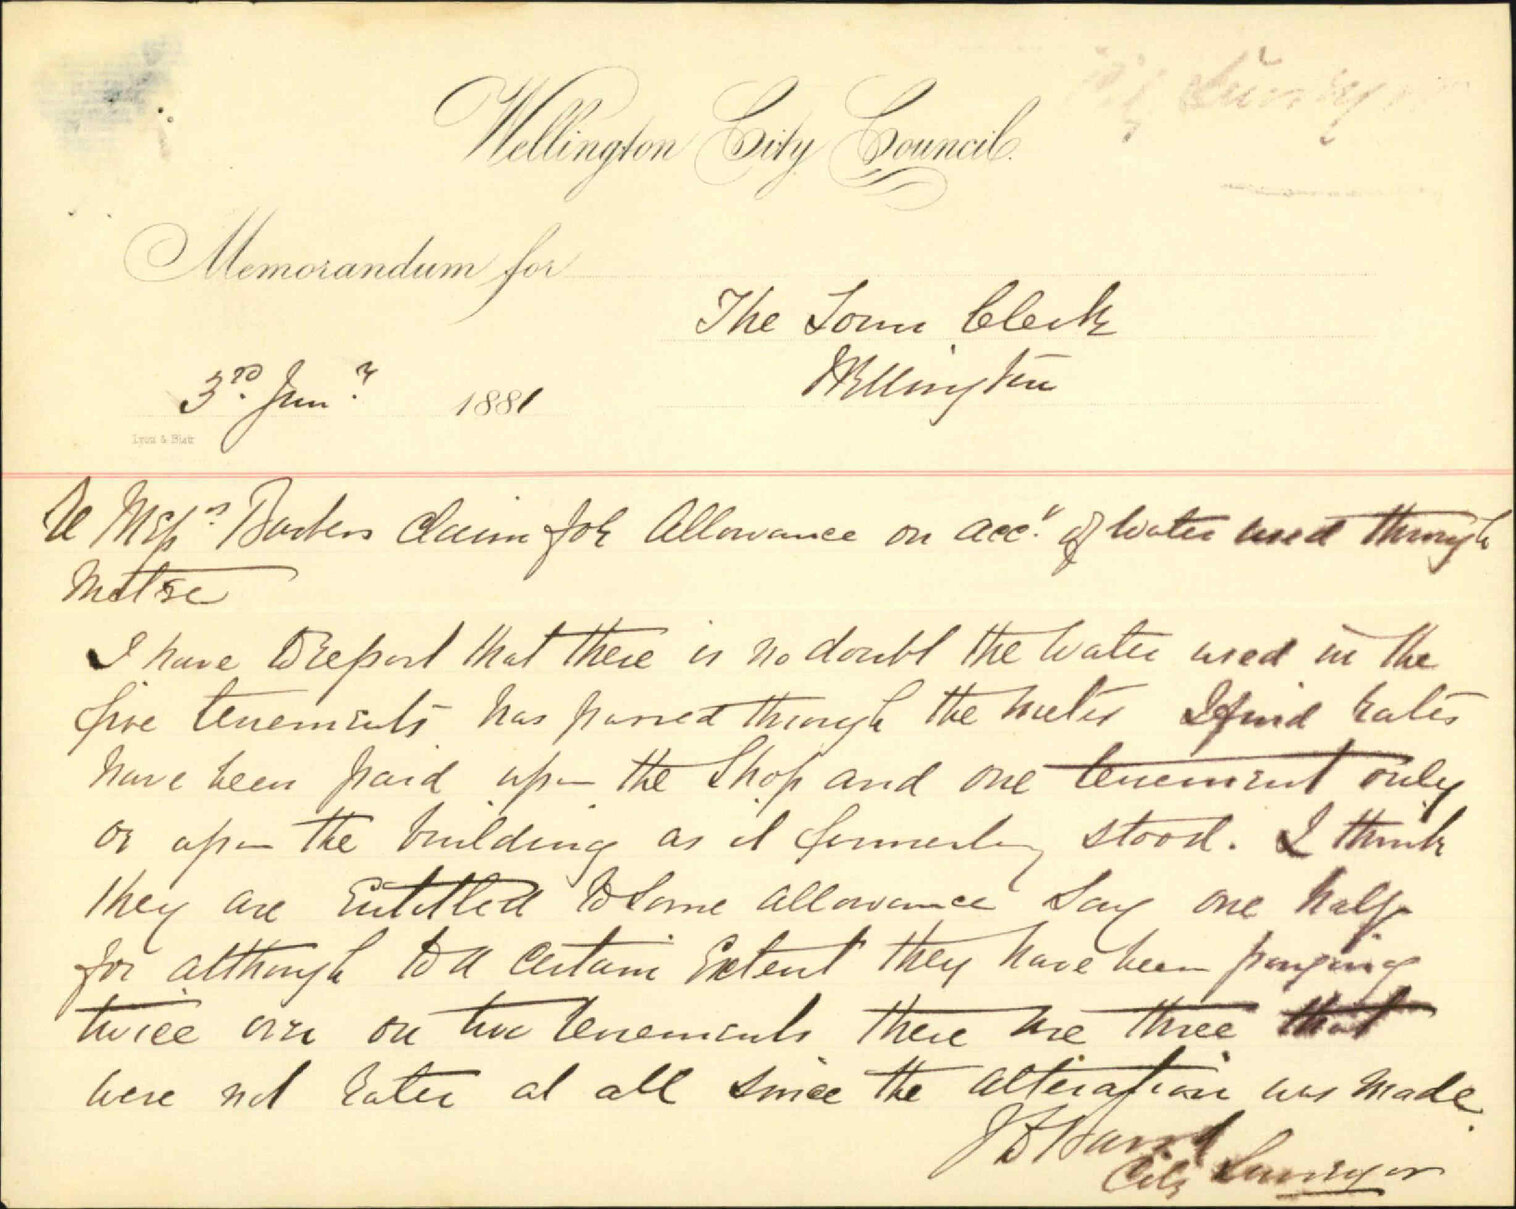 Wellington City Council.
Memorandum for
The Town Clerk
Wellington
3rd Jany 1881
Lyon & Blair
Re Messrs Barbers Claim for Allowance on acct of Water used through
Metre
I have to report that there is no doubt the Water used in the
five tenements has passed through the meter I find rates
have been paid upon the Shop and one tenement only
or upon the building as it formerly stood. I think
they are Entitled to some allowance say one half
for although to a certain Extent they have been paying
twice over on two tenements there are three that
were not rated at all since the alteration was made.
City Surveyor